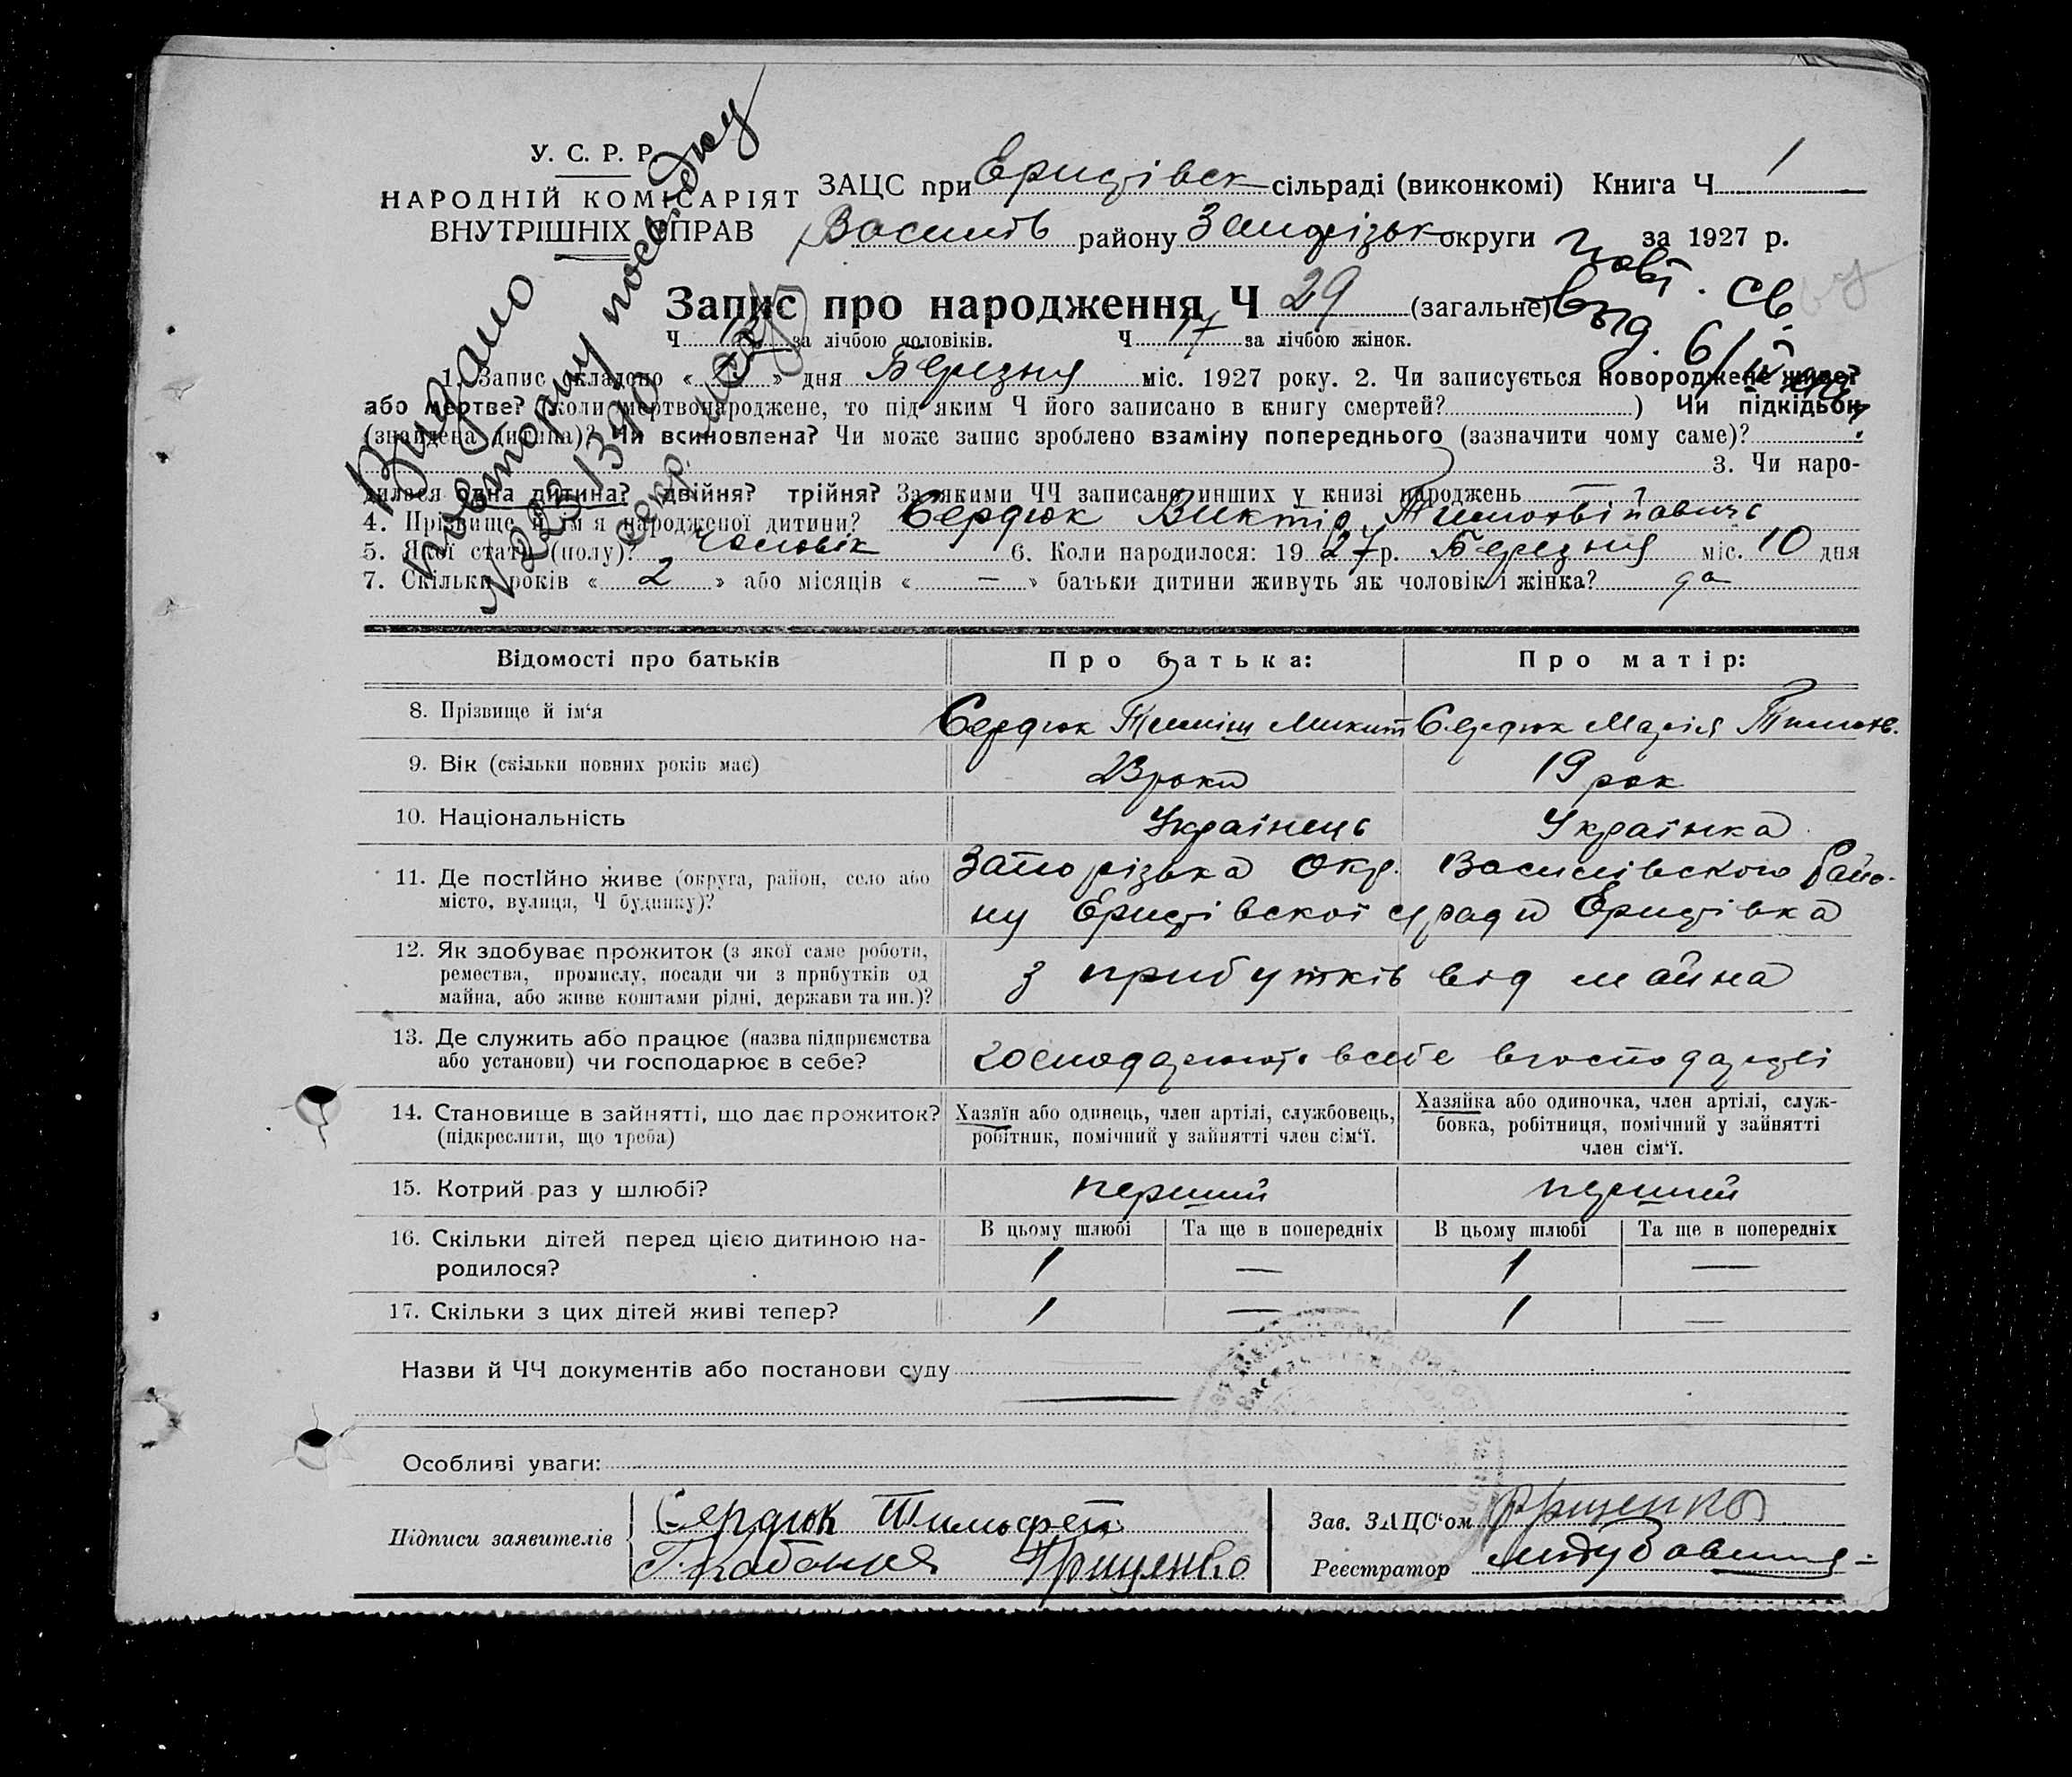 У. С. Р. Р.
НАРОДНІЙ КОМІСАРІЯТ
ВНУТРІШНІХ СПРАВ
ЗАЦС при Ерищівск сільраді (виконкомі) Книга Ч 1
Василів району Запорізьк округи за 1927 р.
Видано
повторну
Запис про народження Ч 29 (загальне)
Ч за лічбою чоловіків. Ч 17 за лічбою жінок.
1. Запис складено « » дня Березня міс. 1927 року. 2. Чи записується новороджене живе?
або мертве? (коли мертвонароджене, то під яким Ч його записано в книгу смертей? ) Чи підкідьок
(знайдена дитина)? Чи всиновлена? Чи може запис зроблено взаміну попереднього (зазначити чому саме)?
3. Чи наро-
дилася одна дитина? двійня? трійня? За якими ЧЧ записано инших у книзі народжень — ?
4. Прізвище й ім'я народженої дитини? Сердюк Виктір
5. Якої стати (полу)? чоловік 6. Коли народилося: 1927 р. Березня міс. 10 дня
7. Скільки років « 2 » або місяців « — » батьки дитини живуть як чоловік і жінка? да
Відомості про батьків Про батька: Про матір:
8. Прізвище й ім'я Сердюк Тиміш Микит Сердюк Марія Тимоф.
9. Вік (скільки повних років має) 23 роки 19 рок
10. Національність Українець Українка
11. Де постійно живе (округа, район, село або місто, вулиця, Ч будинку)? Запорізька Окр. Василівського Райо-
ну Ерищівскоі с/ради Ерищівка
12. Як здобуває прожиток (з якої саме роботи,
ремества, промислу, посади чи з прибутків од
майна, або живе коштами рідні, держави та ин.)? з прибутків від майна
13. Де служить або працює (назва підприємства
або установи) чи господарює в себе? господарюють в себе в господарстві
14. Становище в зайнятті, що дає прожиток? (підкреслити, що треба)
Хазяїн або одинець, член артілі, службовець, робітник, помічний у зайнятті член сім'ї.
Хазяйка або одиночка, член артілі, служ-
бовка, робітниця, помічний у зайнятті
член сім'ї.
15. Котрий раз у шлюбі? перший перший
В цьому шлюбі Та ще в попередніх В цьому шлюбі Та ще в попередніх
16. Скільки дітей перед цією дитиною на-
родилося? 1 — 1 —
17. Скільки з цих дітей живі тепер? 1 — 1 —
Назви й ЧЧ документів або постанови суду
Особливі уваги:
Підписи заявителів Сердюк Тимофей
Грищенко
Зав. ЗАЦС'ом Грищенко
Реєстратор